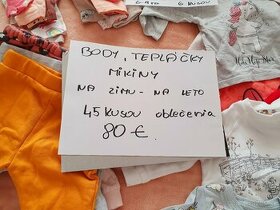 6 KUSOV
BODY, TEPLÁČKY
MIKINY
NA ZIMU - NA LETO
45 KUSOV oblečenia
80 €